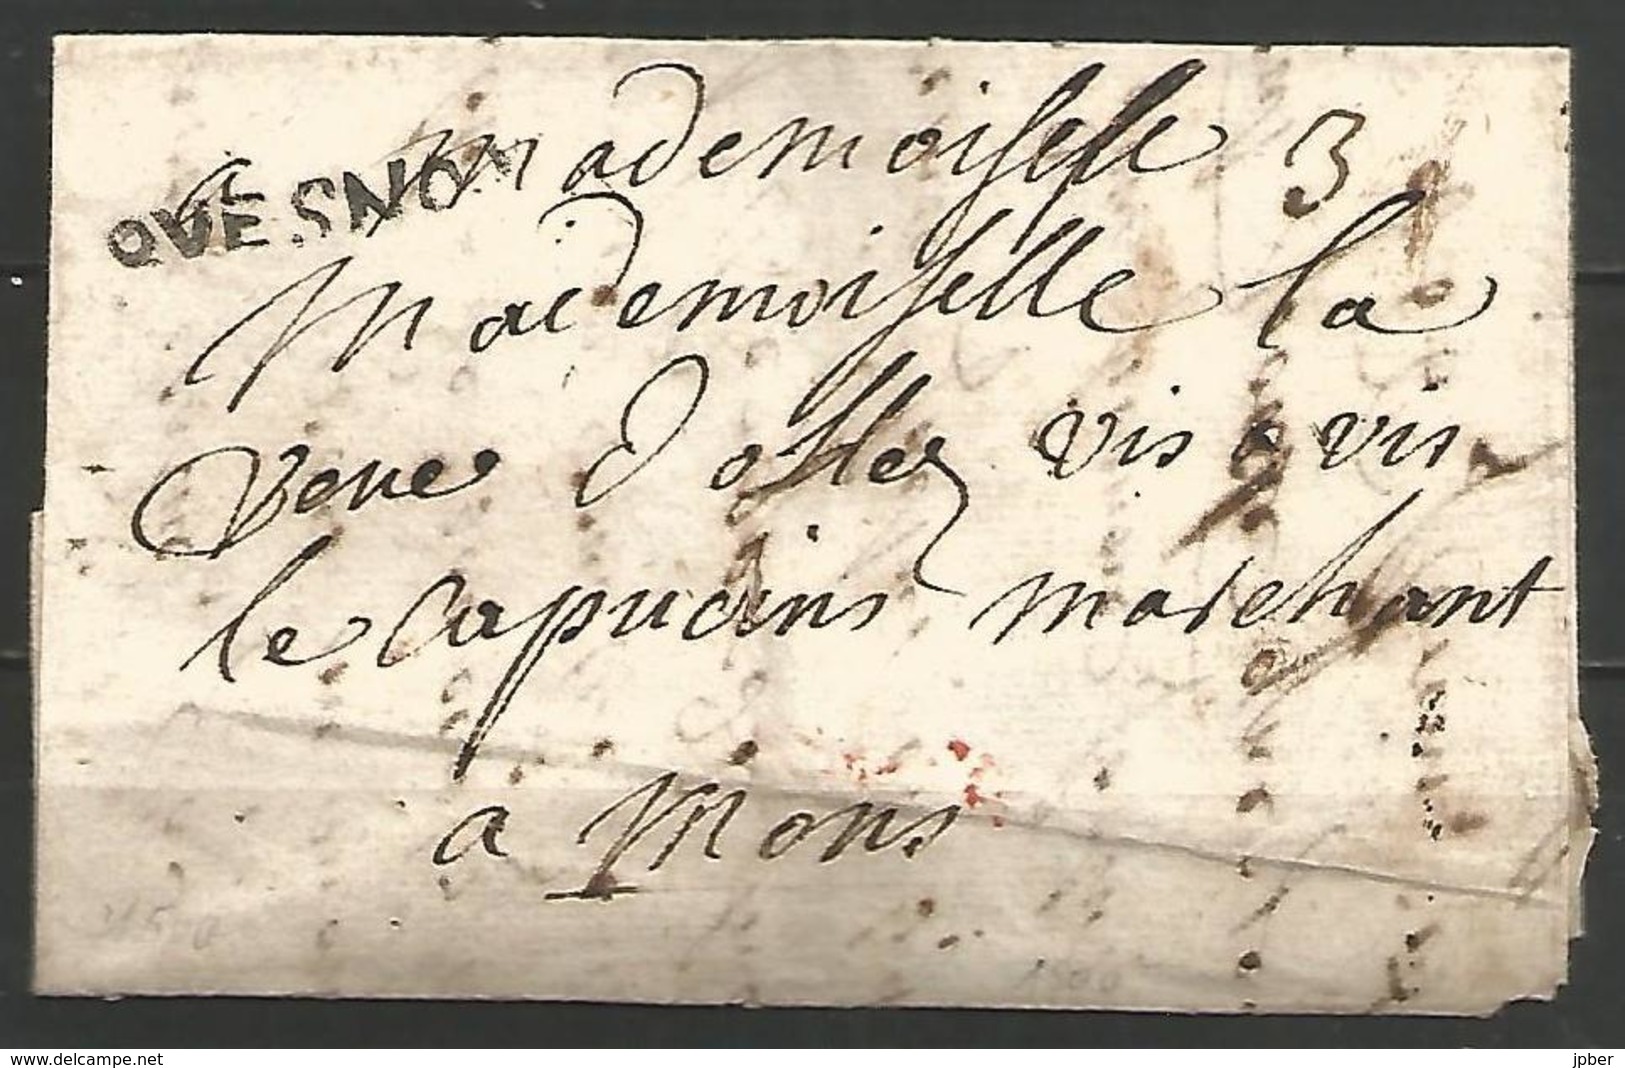 a Mademoiselle 3
QUESNOY
Mademoiselle la
veue dolley vis a vis
le capucins marchant
a Mons
delcampe.net
jpber